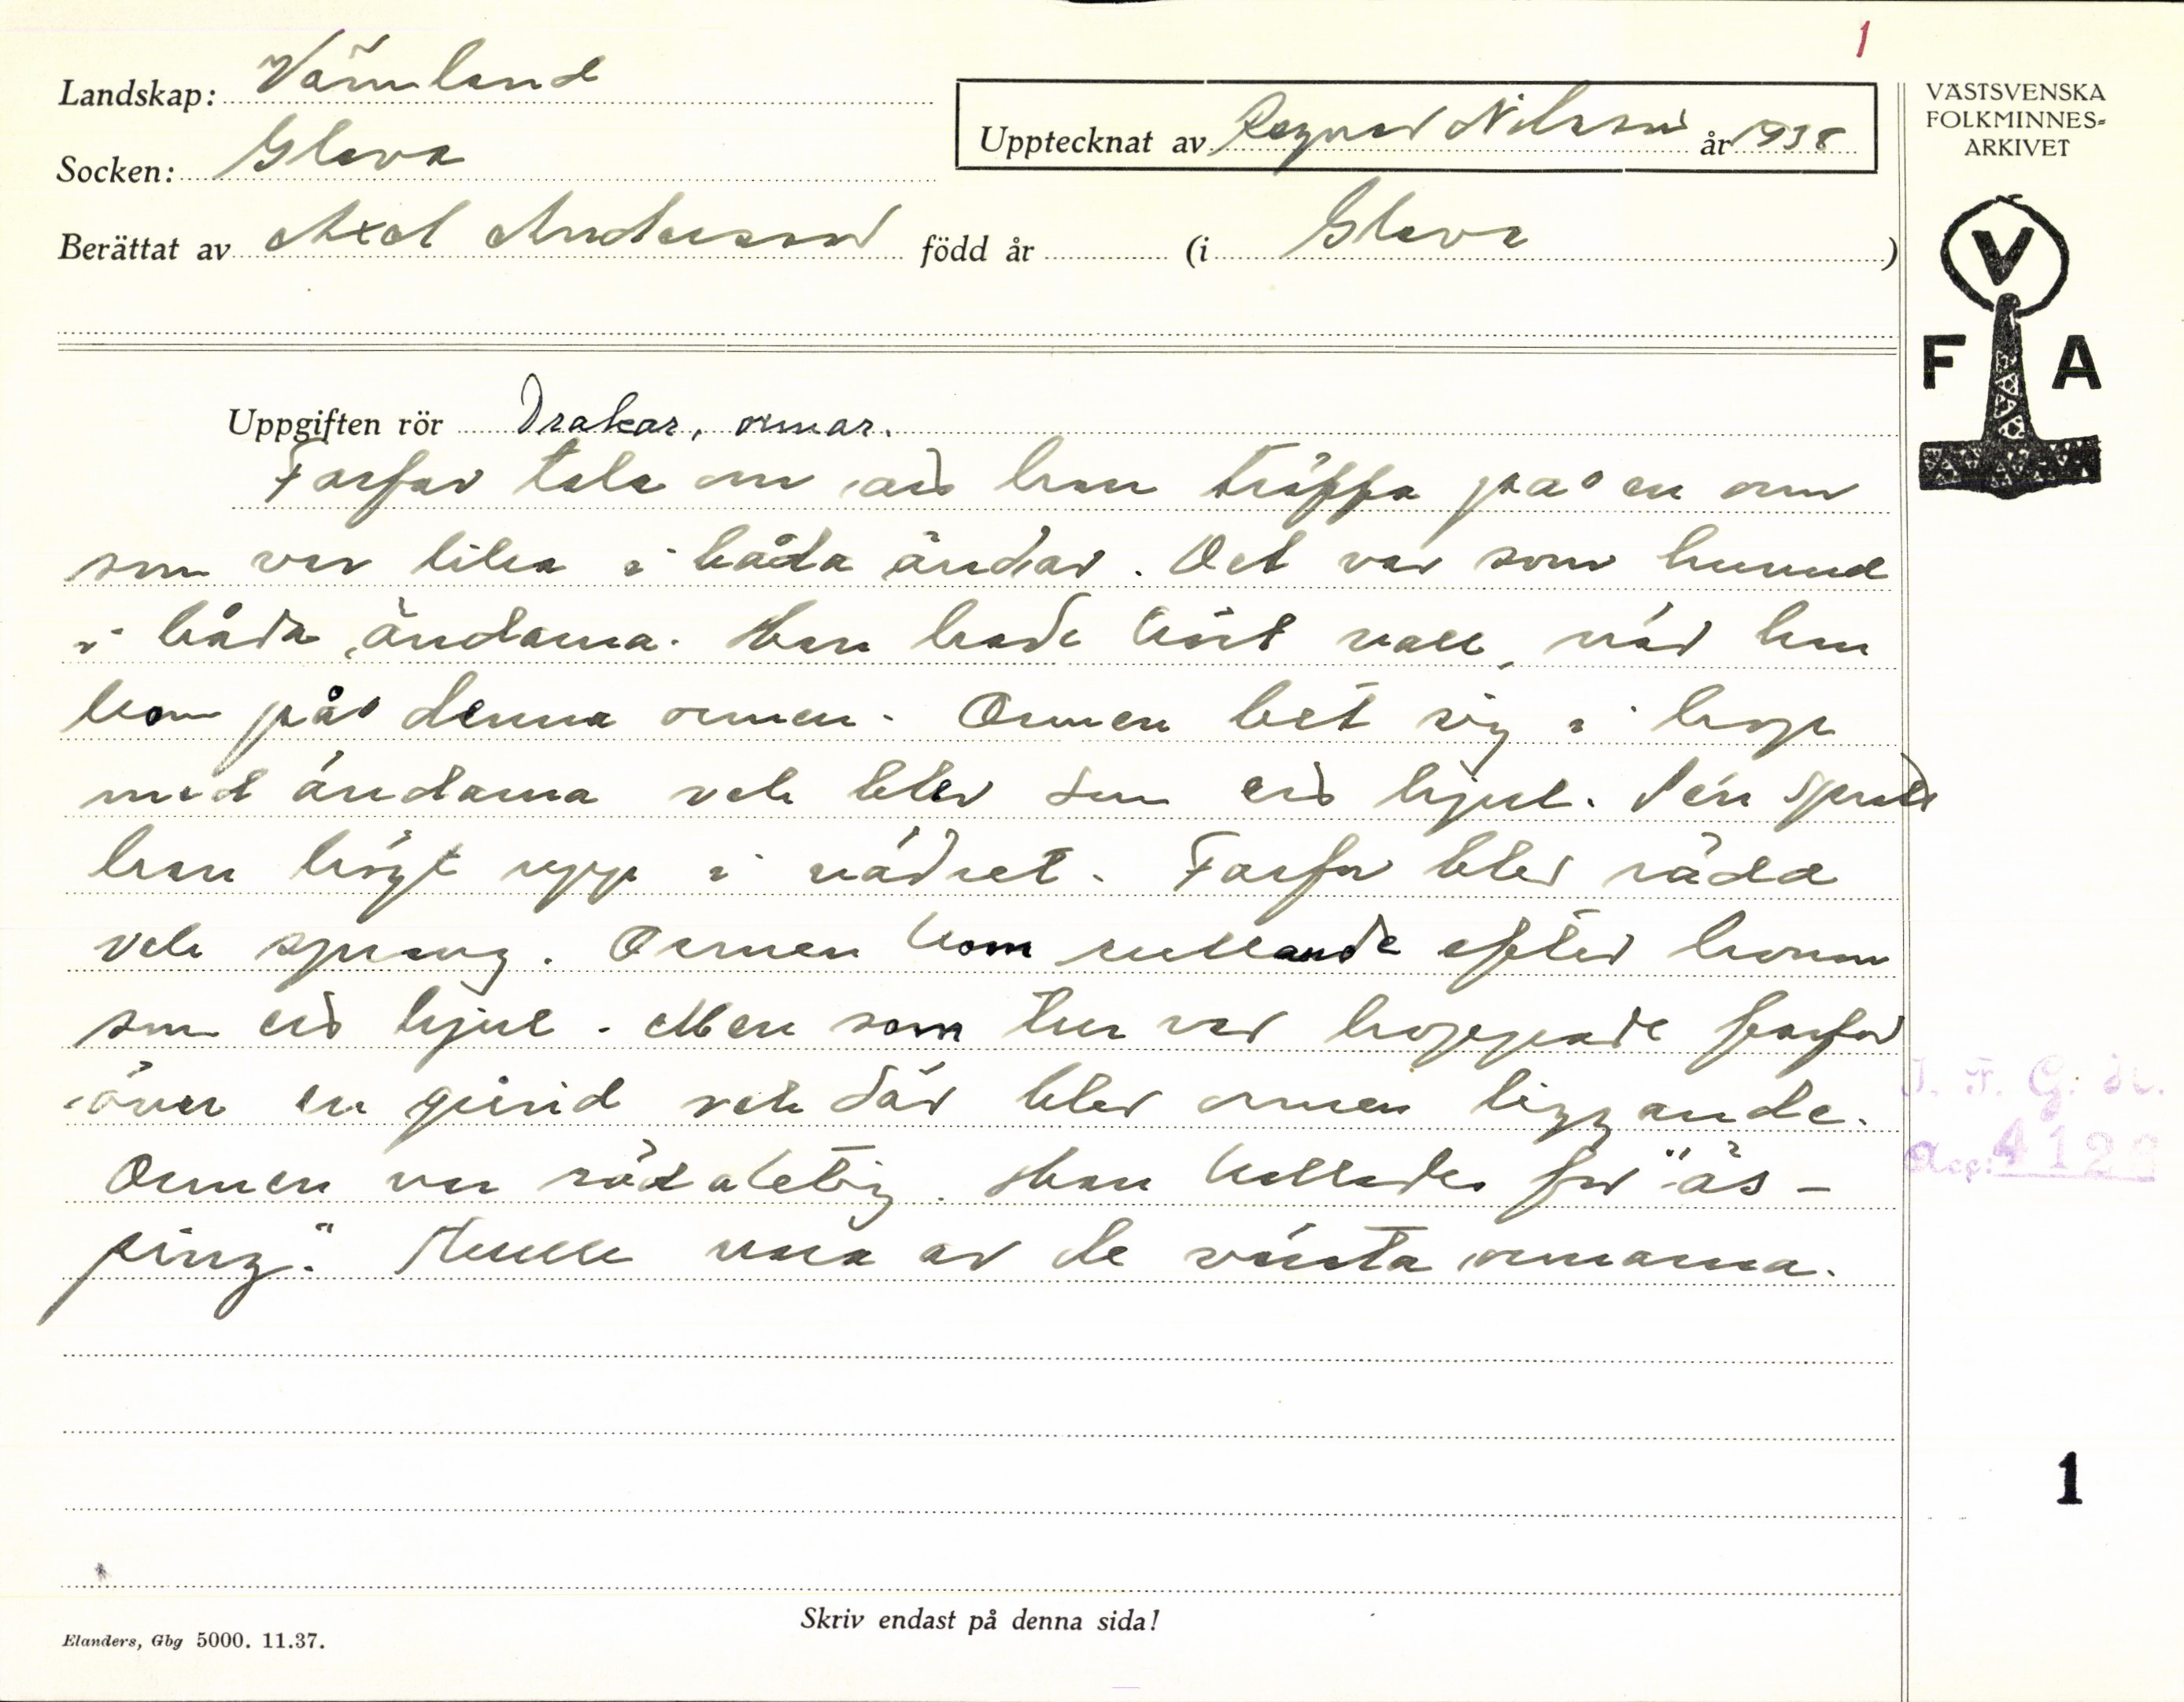 1
Landskap: Värmland
Socken: Glava
Upptecknat av Ragnar Nilsson år 1938
Berättat av Axel Andersson född år (i Glava )
VÄSTSVENSKA
FOLKMINNES-
ARKIVET
V
F A
Uppgiften rör Drakar, ormar.
Farfar tala om att han träffa på en orm
som var lika i båda ändar. Det var som huvud
i båda ändarna. Han hade kört vall, när han
kom på denna ormen. Ormen bet sig i hop
med ändarna och blev som ett hjul.
han högt upp i vädret. Farfar blev rädd
och sprang. Ormen kom rullande efter honom
som ett hjul. Men som tur var hoppade farfar
över en grind och där blev ormen liggande.
Ormen var rödaktig. Han kallades för "äs-
ping". Skulle vara av de värsta ormarna.
I. F. G. H.
Acc: 412
1
Skriv endast på denna sida!
Elanders, Gbg 5000. 11.37.